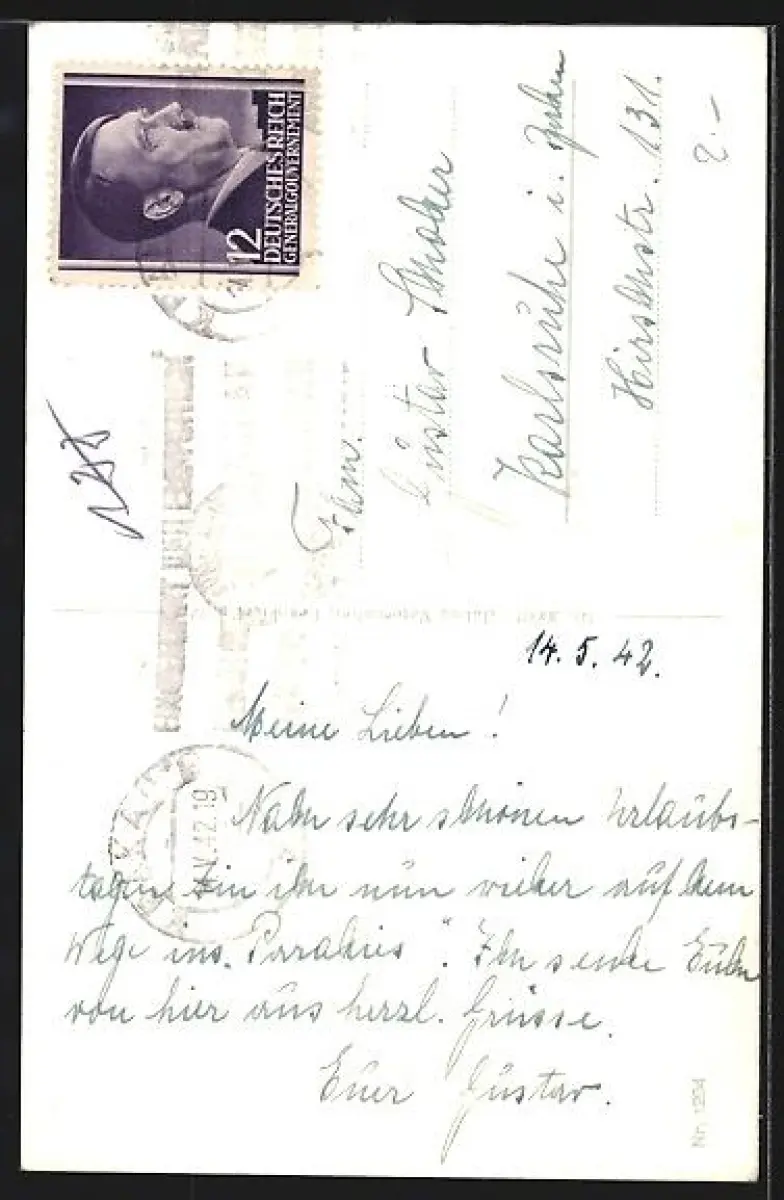 12
DEUTSCHES REICH
GENERALGOUVERNEMENT
Fam.
Gustav
Karlsruhe i. Baden
Hirschstr. 131.
2.-
14. 5. 42.
Meine Lieben!
Nach sehr schönen Urlaubs-
tagen bin ich nun wieder auf dem
Wege ins "Paradies". Ich sende Euch
von hier aus herzl. Grüsse.
Euer Gustav.
V.42.19
Nr. 1204